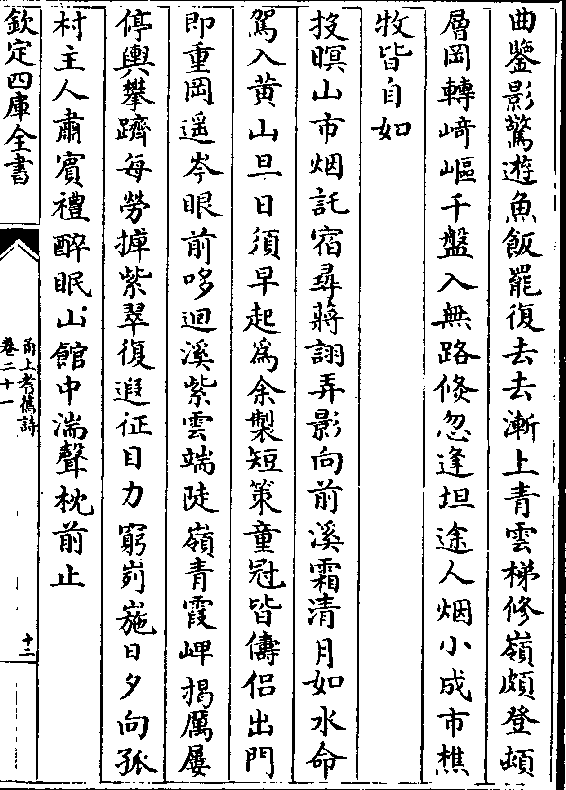 曲鑒影驚遊魚飯罷復去去漸上青雲梯修嶺頗登頓
層岡轉﨑嶇千盤入無路倐忽逢坦途人烟小成市樵
牧皆自如
投暝山市烟託宿尋蔣詡弄影向前溪霜清月如水命
駕入黄山旦日須早起為余製短䇿童冠皆儔侣出門
即重岡遥岑眼前哆迴溪紫雲端陡嶺青霞岬揭厲屢
停輿攀躋每勞捭紫翠復遐征目力窮峛崺日夕向孤
村主人肅賔禮醉眠山館中湍聲枕前止
欽定四庫全書
甬上耆舊詩
卷二十一
十二